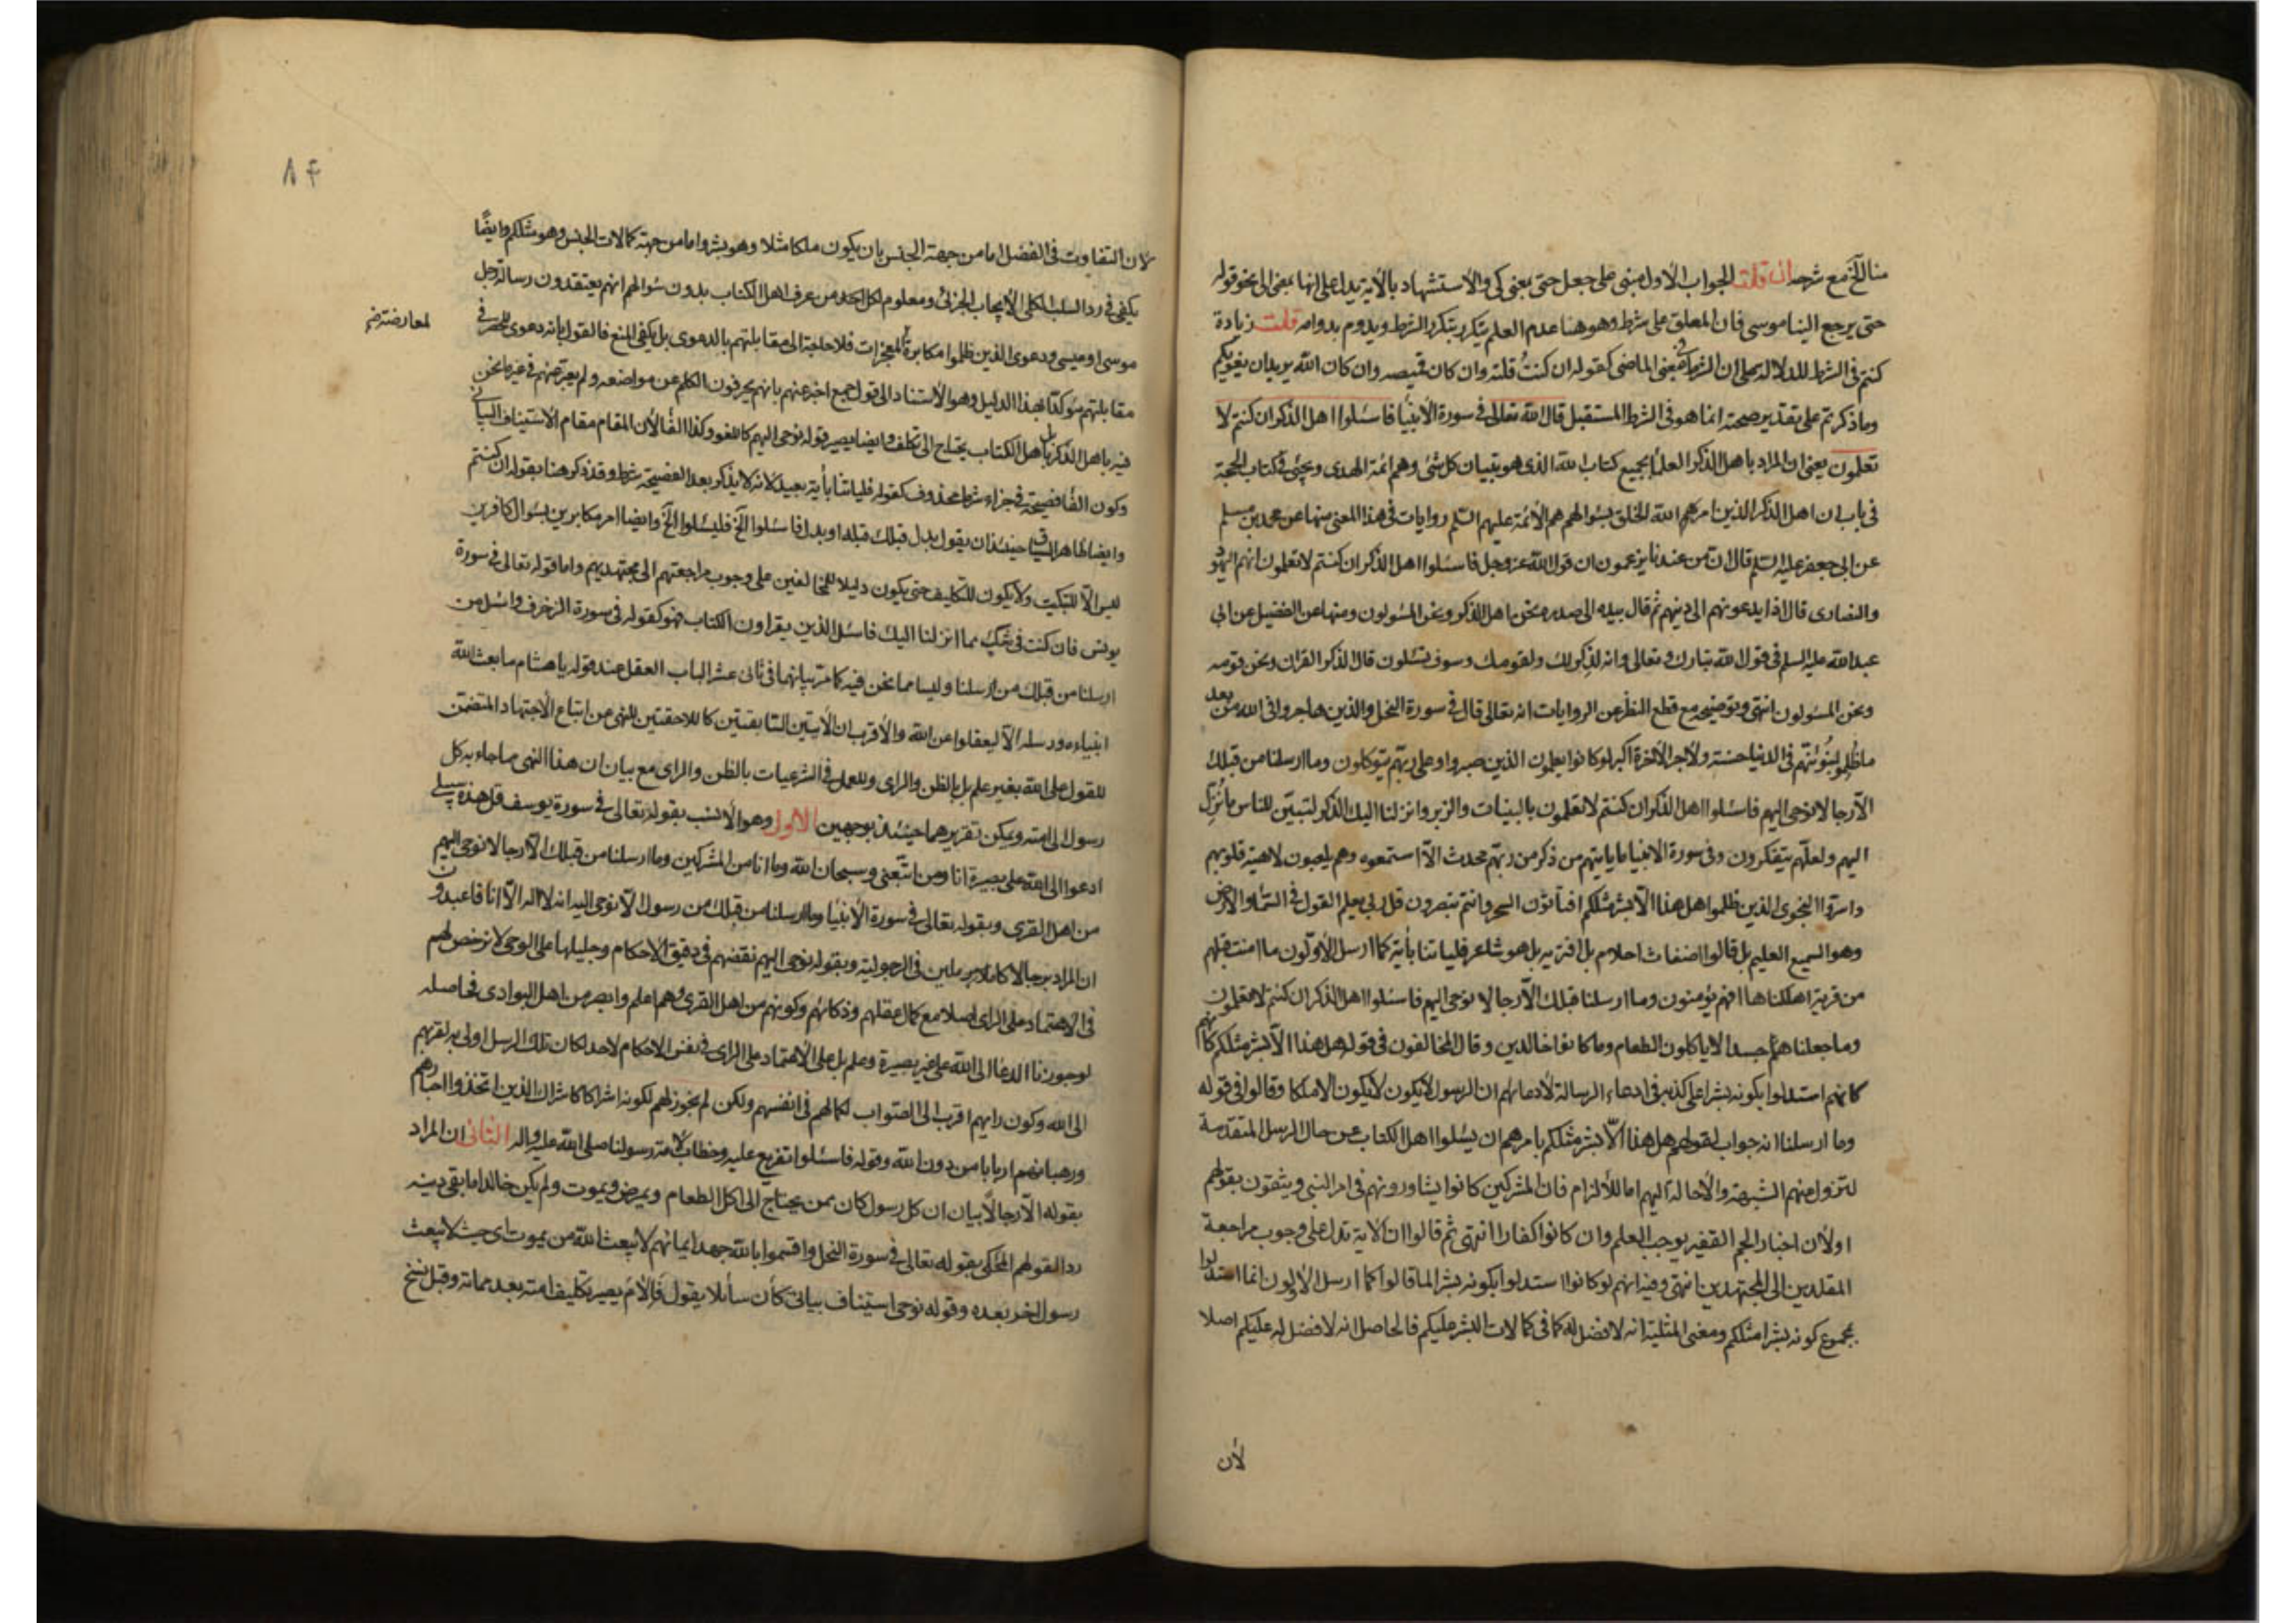 منا الخ مع شرحه ان قلت الجواب الاول مبنى على جعل حتى بمعنى كى والاستشهاد بالآية يدل على انها بمعنى الى نحو قوله
حتى يرجع الينا موسى فان المعلق على شرط وهو هنا عدم العلم يتكرر بتكرر الشرط ويدوم بدوامه قلت زيادة
كنتم فى الشرط للدلالة على ان الشرط فى معنى الماضى كقوله ان كنتُ قلته وان كان قميصه وان كان الله يريد ان يغويكم
وما ذكرتم على تقدير صحته انما هو فى الشرط المستقبل قال الله تعالى فى سورة الأنبيا فاسئلوا اهل الذكر ان كنتم لا
تعلمون يعنى ان المراد باهل الذكر العلما بجميع كتاب الله الذى هو تبيان كل شئ وهم ائمة الهدى ويجئ فى كتاب الحجة
فى باب ان اهل الذكر الذين امرهم الله الخلق بسؤالهم هم الأئمة عليهم السّلم روايات فى هذا المعنى منها عن محمد بن مسلم
عن ابى جعفر عليه السّلم قال ان من عندنا يزعمون ان قول الله عز وجل فاسئلوا اهل الذكر ان كنتم لا تعلمون انهم اليهود
والنصارى قال اذا يدعونهم الى دينهم ثم قال بيده الى صدره نحن اهل الذكر ونحن المسئولون ومنها عن الفضيل عن ابى
عبد الله عليه السلم فى قول الله تبارك وتعالى وانه لذِكر لك ولقومك وسوف تسئلون قال الذكر القران ونحن قومه
ونحن المسئولون انتهى وتوضيحه مع قطع النظر عن الروايات انه تعالى قال فى سورة النحل والذين هاجروا فى الله من بعد
ما ظُلموا لنبوّئنّهم فى الدنيا حسنة ولأجر الآخرة اكبر لو كانوا يعلمون الذين صبروا وعلى ربّهم يتوكلون وما ارسلنا من قبلك
الّا رجالا نوحى اليهم فاسئلوا اهل الذكر ان كنتم لا تعلمون بالبينات والزبر وانزلنا اليك الذكر لتبيّن للناس ما نُزّل
اليهم ولعلّهم يتفكرون وفى سورة الانبيا ما ياتيهم من ذكر من ربّهم محدث الّا استمعوه وهم يلعبون لاهية قلوبهم
واسرّوا النجوى الذين ظلموا هل هذا الّا بشر مثلكم افتأتون السحر وانتم تبصرون قل ربى يعلم القول فى السّماء والارض
وهو السميع العليم بل قالوا اضغاث احلام بل افتريه بل هو شاعر فلياتنا بأية كما ارسل الأوّلون ما امنت قبلهم
من قرية اهلكناها افهم يؤمنون وما ارسلنا قبلك الّا رجالا نوحى اليهم فاسئلوا اهل الذكر ان كنتم لا تعلمون
وما جعلناهم جسدا لا ياكلون الطعام وما كانوا خالدين وقال المخالفون فى قوله هل هذا الّا بشر مثلكم
كانهم استدلوا بكونه بشرا على كذبه فى ادعاء الرسالة لادعائهم ان الرسول لا يكون لا يكون الا ملكا وقالوا فى قوله
وما ارسلنا انه جواب لقولهم هل هذا الّا بشر مثلكم يامرهم ان يسئلوا اهل الكتاب عن حال الرسل المتقدمة
لتزول عنهم الشبهة والأحالة اليهم اما للألزام فان المشركين كانوا يشاورونهم فى امر النبى ويثقون بقولهم
اولأن اخبار الجم الغفير يوجب العلم وان كانوا كفارا انتهى ثم قالوا ان الآية تدل على وجوب مراجعة
المقلدين الى المجتهدين انتهى وفيه انهم لو كانوا استدلوا بكونه بشرا لما قالوا كما ارسل الأولون انما استدلوا
بمجموع كونه بشرا مثلكم ومعنى المثلية انه لا فضل له كما فى كمالات البشر عليكم فالحاصل انه لا فضل له عليكم اصلا
لأن
٨٤
لأن التفاوت فى الفضل اما من جهة الجنس بان يكون ملكا مثلا وهو بشر واما من جهة كمالات الجنس وهو مثلكم وايضًا
يكفى فى رد السلب الكلى الأيجاب الجزئى ومعلوم لكل احد من عرف اهل الكتاب بدون سؤالهم انهم يعتقدون رسالة رجل
موسى او عيسى ودعوى الذين ظلموا مكابرة للمعجزات فلا حاجة الى مقابلتهم بالدعوى بل يكفى المنع فالقول بانه دعوى للحصر فى
لمعارضتهم
مقابلتهم مؤكدًا بهذا الدليل وهو الأستناد الى قول جمع اخبر عنهم بانهم يحرفون الكلم عن مواضعه ولم يعترضهم فى غير ما نحن
فيه باهل الذكر بل باهل الكتاب يحتاج الى تكلف وايضا يصير قوله نوحى اليهم كاللغو وكذا الفا لأن المقام مقام الاستيناف البيانى
وكون الفا فصيحة فى جزاء شرط محذوف كقوله فلياتنا بأية بعيد لانه لا يذكر بعد الفصيحة شرط وقد ذكر هنا بقوله ان كنتم
وايضا ظاهر السياق حينئذ ان يقول بدل قبلك قبله او بدل فاسئلوا الخ فليسئلوا الخ وايضا امر مكابرين بسؤال كافرين
ليس الّا للتبكيت ولا يكون للتكليف حتى يكون دليلا للمخالفين على وجوب مراجعتهم الى مجتهديهم واما قوله تعالى فى سورة
يونس فان كنت فى شك مما انزلنا اليك فاسئل الذين يقراون الكتاب فهو كقوله فى سورة الزخرف واسئل من
ارسلنا من قبلك من رسلنا وليسا مما نحن فيه كما مرّ بيانهما فى ثانى عشر الباب العقل عند قوله يا هشام ما بعث الله
انبياءه ورسله الّا ليعقلوا عن الله والأقرب ان الأيتين السابقتين كاللاحقتين للنهى عن اتباع الأجتهاد المتضمن
للقول على الله بغير علم بل بالظن والراى وللعمل فى الشرعيات بالظن والراى مع بيان ان هذا النهى مما جاء به كل
رسول الى امته ويمكن تقريرهما حينئذ بوجهين الاول وهو الأنسب بقوله تعالى فى سورة يوسف قل هذه سبيلى
ادعوا الى الله على بصيرة انا ومن اتبعنى وسبحان الله وما انا من المشركين وما ارسلنا من قبلك الّا رجالا نوحى اليهم
من اهل القرى وبقوله تعالى فى سورة الأنبيا وما ارسلنا من قبلك من رسول الّا نوحى اليه انه لا اله الّا انا فاعبدون
ان المراد برجالا كاملين فى الرجولية وبقوله نوحى اليهم نقضهم فى دقيق الأحكام وجليلها على الوحى لا نرخص لهم
فى الاعتماد على الراى اصلا مع كمال عقلهم وذكائهم وكونهم من اهل القرى وهم اعلم وابصر من اهل البوادى فحاصله
لو جوزنا الدعا الى الله على غير بصيرة وعلم بل على الاعتماد على الراى فى نفس الاحكام لاحد لكان تلك الرسل اولى به لقربهم
الى الله وكون رايهم اقرب الى الصواب لكمالهم فى انفسهم ولكن لم نجوز لهم لكونه اشراكا كاشراك الذين اتخذوا احبارهم
ورهبانهم اربابا من دون الله وقوله فاسئلوا تفريع عليه وخطاب لأمة رسولنا صلى الله عليه واله الثانى ان المراد
بقوله الّا رجالًا بيان ان كل رسول كان ممن يحتاج الى اكل الطعام ويمرض ويموت ولم يكن خالدا ما بقى دينه
ردا لقولهم المحكى بقوله تعالى فى سورة النحل واقسموا بالله جهد ايمانهم لا يبعث الله من يموت اى حيث لا يبعث
رسول اخر بعده وقوله نوحى استيناف بيانى كأن سائلا يقول فإلام يصير تكليف امته بعد مماته وقبل نسخ